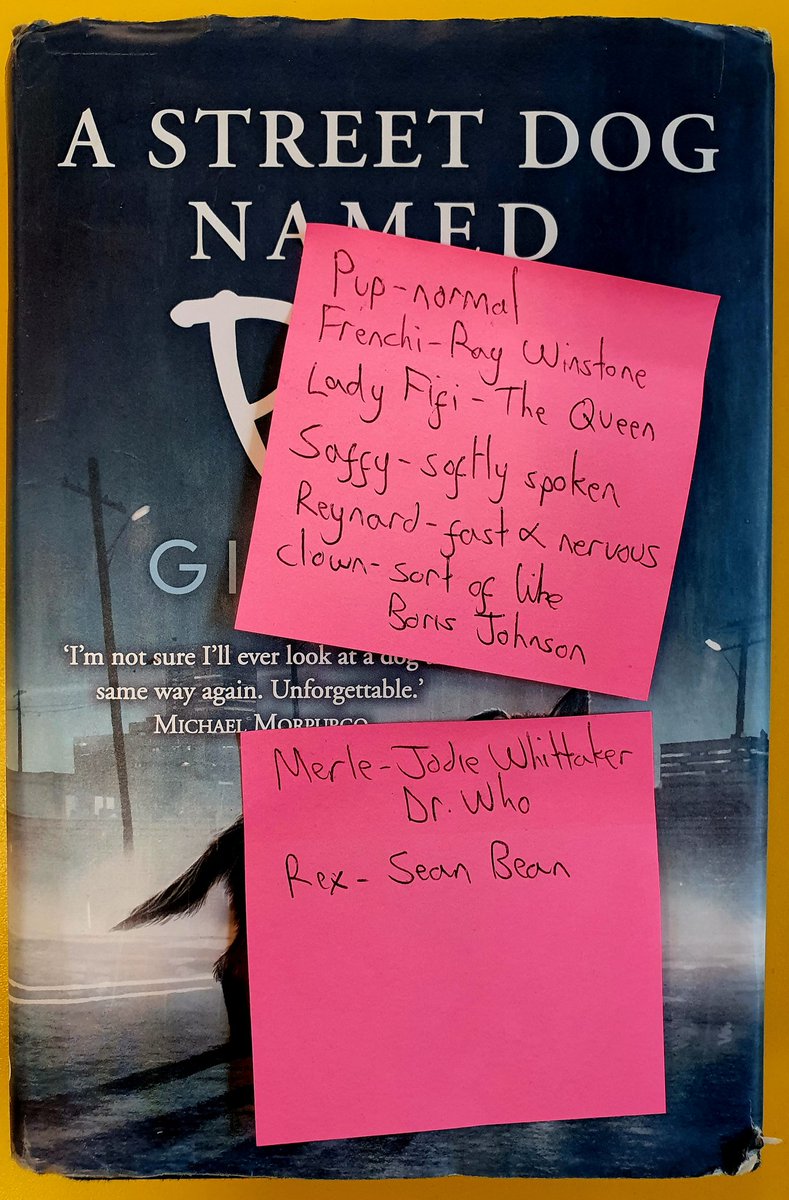 A STREET DOG
NAMED
P
GI
'I'm not sure I'll ever look at a dog
same way again. Unforgettable.'
MICHAEL MORPURGO
Pup-normal
Frenchi-Ray Winstone
Lady Fifi-The Queen
Saffy-softly spoken
Reynard-fast & nervous
clown-sort of like
Boris Johnson
Merle-Jodie Whittaker
Dr. Who
Rex-Sean Bean